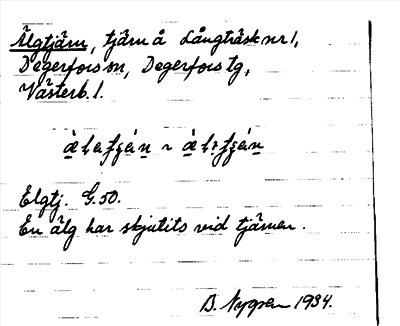 Älgtjärn, tjärn å Långträsk nr 1,
Degerfors sn, Degerfors tg,
Västerb. l.
Elgtj. G.50.
En älg har skjutits vid tjärnen.
B. Nygren 1934.